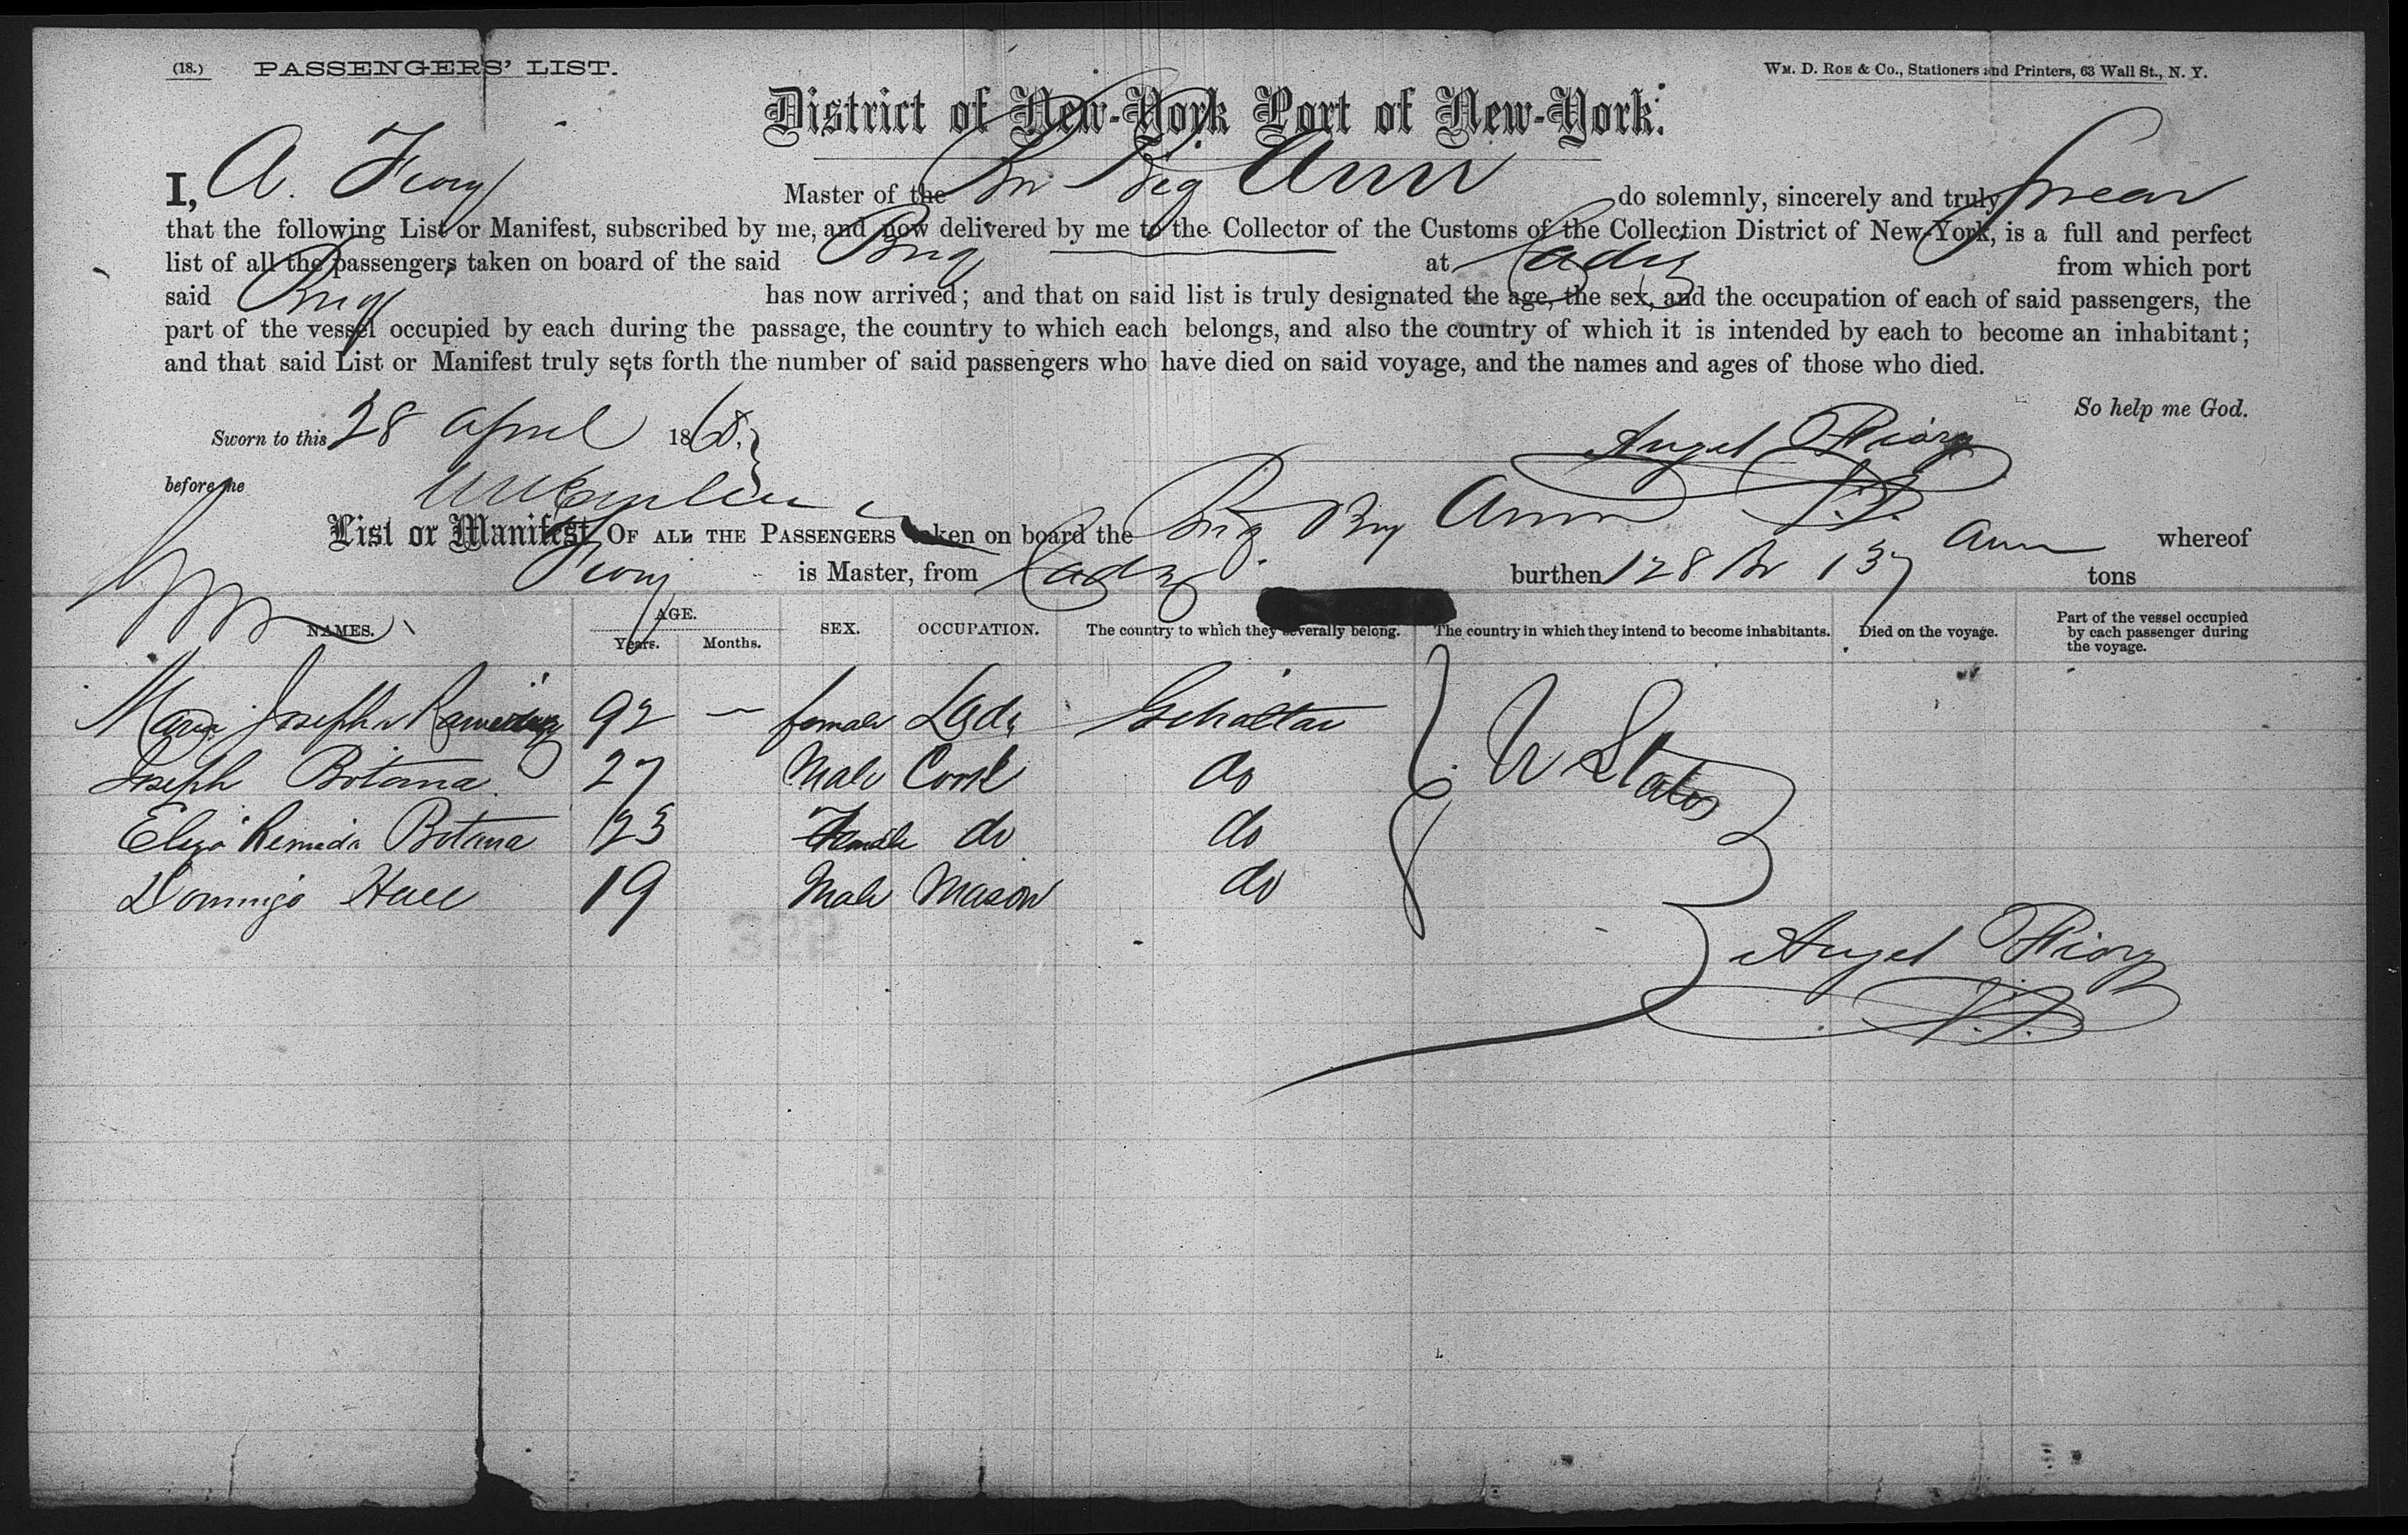 (18.) PASSENGERS' LIST. WM. D. ROE & Co., Stationers and Printers, 63 Wall St., N. Y.
District of New-York Port of New-York.
I, A. Fiory Master of the Br Brig Ann do solemnly, sincerely and truly swear
that the following List or Manifest, subscribed by me, and now delivered by me to the Collector of the Customs of the Collection District of New-York, is a full and perfect
list of all the passengers taken on board of the said Brig at Cadiz from which port
said Brig has now arrived; and that on said list is truly designated the age, the sex, and the occupation of each of said passengers, the
part of the vessel occupied by each during the passage, the country to which each belongs, and also the country of which it is intended by each to become an inhabitant;
and that said List or Manifest truly sets forth the number of said passengers who have died on said voyage, and the names and ages of those who died.
So help me God.
Sworn to this 28 April 1868. Angel Fiory
before me
List or Manifest OF ALL THE PASSENGERS taken on board the Brig Ann whereof
Fiory is Master, from Cadiz burthen 128 Br 137 tons
NAMES. AGE. Years. Months. SEX. OCCUPATION. The country to which they severally belong. The country in which they intend to become inhabitants. Died on the voyage. Part of the vessel occupied by each passenger during the voyage.
Maria Josepha 92 — female Lady Gibraltar U States
Joseph Botana 27 Male Cook do
Botana 23 Female do do
Domingo Hall 19 Male Mason do
Angel Fiory